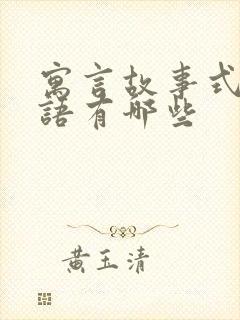 寓言故事式
語有哪些
黄玉清